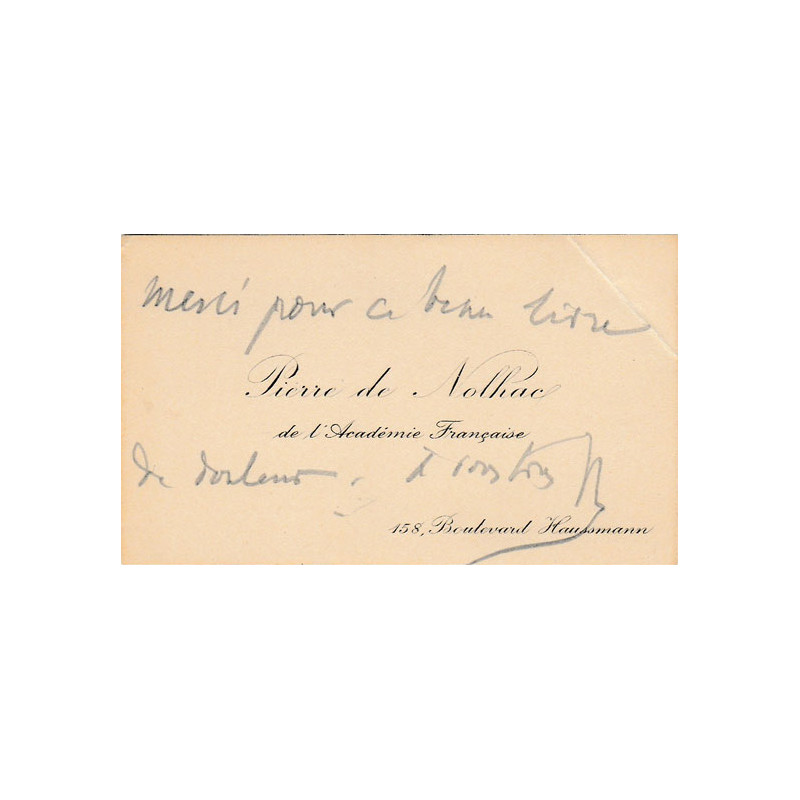 merci pour ce beau livre
Pierre de Nolhac
de l'Académie Française
de douleur. à vous tous
158, Boulevard Haussmann